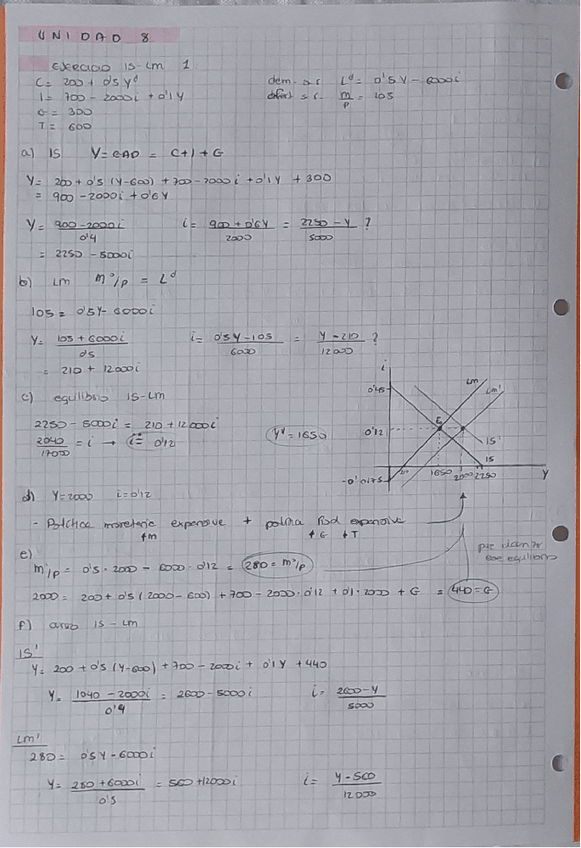 UNIDAD 8
EJERCICIO IS-LM 1
C = 200 + 0'5 Yd
I = 700 - 2000i + 0'1Y
G = 300
T = 600
Ld = 0'5Y - 6000i
m/p = 105
a) IS Y = = C+I+G
Y = 200 + 0'5 (Y-600) + 700 - 2000i + 0'1Y + 300
= 900 - 2000i + 0'6Y
Y = 900-2000i / 0'4 i = 900+0'6Y / 2000 = 2250-Y / 5000 ?
= 2250 - 5000i
b) LM m°/p = Ld
105 = 0'5Y - 6000i
Y = 105 + 6000i / 0'5 i = 0'5Y-105 / 6000 = Y-210 / 12000 ?
= 210 + 12000i
c) equilibrio IS-LM
2250 - 5000i = 210 + 12000i
2040/17000 = i → i = 0'12 Y* = 1650
i
0'45
0'12
-0'0175
LM
LM'
E
IS'
IS
1650
2000
2250
Y
d) Y=2000 i=0'12
- Política monetaria expansiva + política expansiva
↑m ↑G ↓T
e)
m°/p = 0'5 · 2000 - 6000 · 0'12 = 280 = m°/p
2000 = 200 + 0'5 (2000 - 600) + 700 - 2000 · 0'12 + 0'1 · 2000 + G = 440 = G
f) IS-LM
IS'
Y = 200 + 0'5 (Y-600) + 700 - 2000i + 0'1Y + 440
Y = 1040 - 2000i / 0'4 = 2600 - 5000i i = 2600-Y / 5000
LM'
280 = 0'5Y - 6000i
Y = 280 + 6000i / 0'5 = 560 + 12000i i = Y-560 / 12000